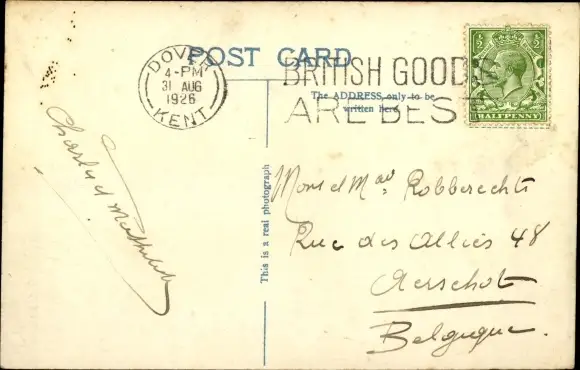 POST CARD
DOVER
4-PM
31 AUG
1926
KENT
BRITISH GOODS
ARE BEST
The ADDRESS only to be
written here
½ ½
HALFPENNY
This is a real photograph
Charly et Mathilde
Mons et Mav Robberechts
Rue des Alliés 48
Aerschot
Belgique.